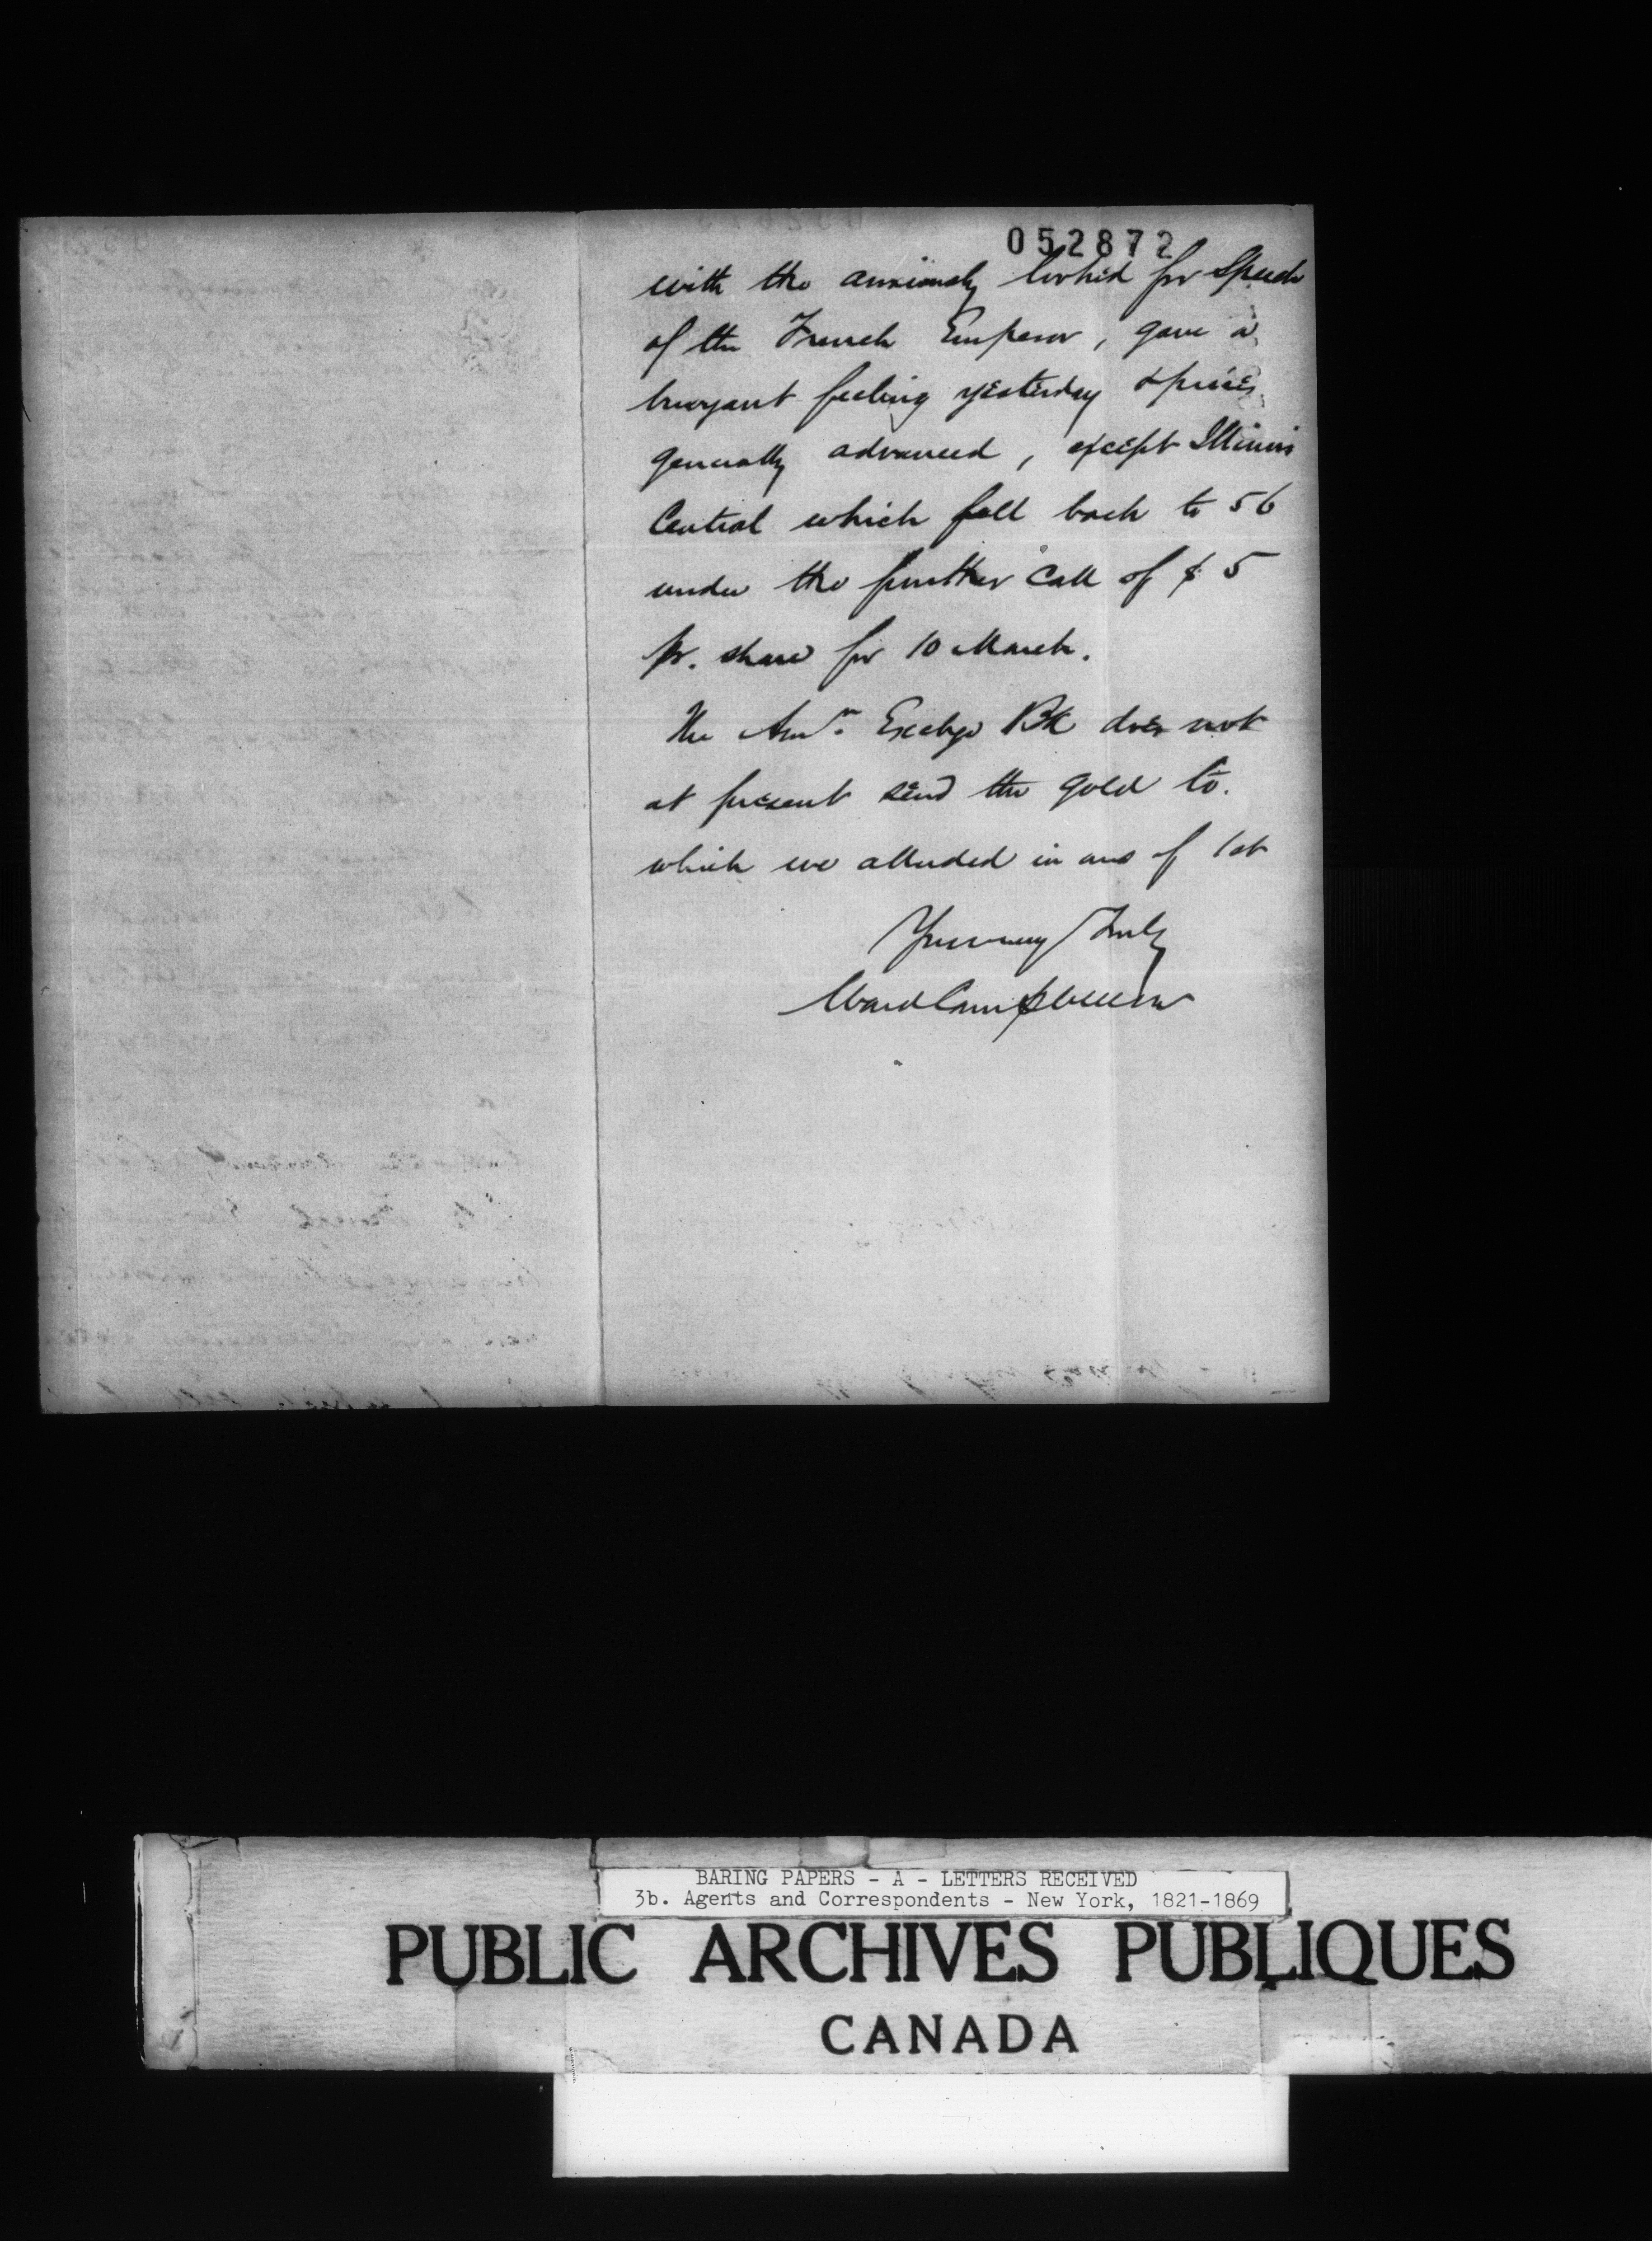 052872
with the anxiously looked for Speech
of the French Emperor, gave a
buoyant feeling yesterday & prices
generally advanced, except Illinois
Central which fell back to 56
under the further Call of $5
pr. share for 10 March.
The Amn. Exchge Bk does not
at present send the gold to.
which we alluded in ans of 1st
Yours very Truly
Ward Campbell & Co
BARING PAPERS - A - LETTERS RECEIVED
3b. Agents and Correspondents - New York, 1821-1869
PUBLIC ARCHIVES PUBLIQUES
CANADA